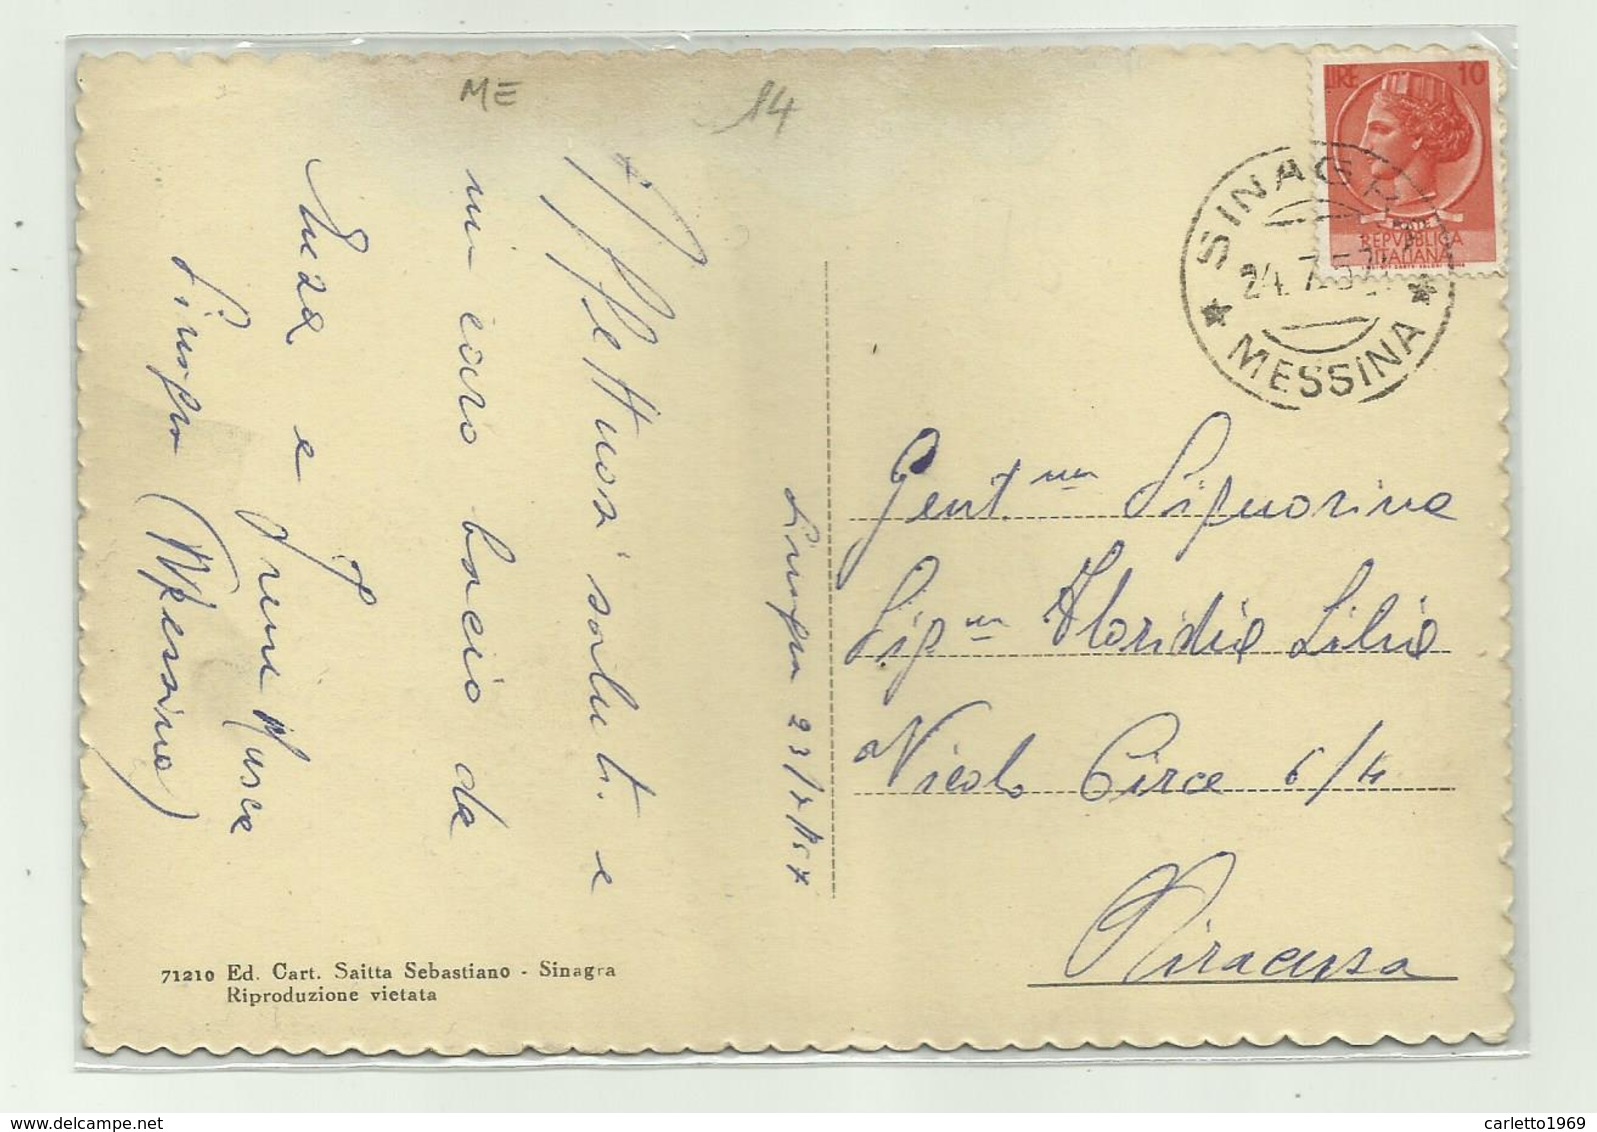 ME
14
LIRE 10
REPVBBLICA
ITALIANA
SINAGRA
24.7.57
MESSINA
Affettuosi saluti e
un caro bacio da
Enza e
Sinagra 23/7/1957
Gent.ma Signorina
Sig.na Floridia Lilia
Vicolo Circe 6/
Siracusa
Sinagra (Messina)
71210 Ed. Cart. Saitta Sebastiano - Sinagra
Riproduzione vietata
carletto1969